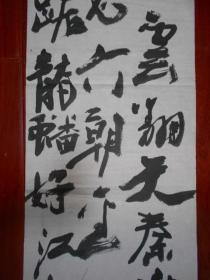 雲翔天秦
六朝
踞龍蟠好江